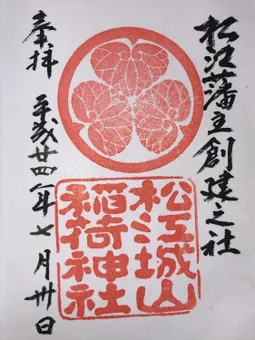 松江藩主創建之社
奉拝
平成廿四年七月卅日
松江城山
稲荷神社